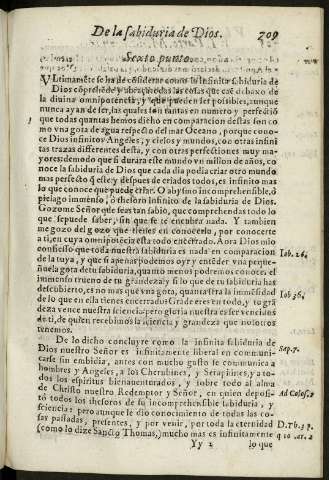 De la sabiduria de Dios. 209
Sexto punto.
Vltimamẽte se ha de cõsiderar como la infinita sabiduria de
Dios cõprehẽde y abraça todas las cosas que caẽ debaxo de
la diuina omnipotencia, y que pueden ser possibles, aunque
nunca ayan de ser, las quales son tantas en numero y perfeciõ
que todas quantas hemos dicho en comparacion destas son co
mo vna gota de agua respecto del mar Oceano, porque cono-
ce Dios infinitos Angeles, y cielos y mundos, con otras infini
tas trazas differentes desta, y con otras perfectiones muy ma-
yores: demodo que si durara este mundo vn millon de años, co
noce la sabiduria de Dios que cada dia podia criar otro mundo
mas perfecto q̃ este, y despues de criados todos, es infinito mas
lo que conoce que puede criar. O abysmo incomprehensible, ò
pielago immenso, ò thesoro infinito de la sabiduria de Dios.
Gozome Señor que seas tan sabio, que comprehendas todo lo
que se puede saber, sin que se te encubra nada. Y tambien
me gozo del gozo que tienes en conocerlo, por conocerte
a ti, en cuya omnipotẽcia esta todo encerrado. Aora Dios mio
confiesso que toda nuestra sabiduria es nada en comparacion
de la tuya, y que si apenas podemos oyr y entẽder vna peque-
ñuela gota de tu sabiduria, quanto menos podremos conocer el
immenso trueno de tu grandeza? y si lo que de tu sabiduria has
descubierto, es no mas que vna gota, quanta serà la immẽsidad
de lo que en ella tienes encerrado? Grade eres en todo, y tu grã
deza vence nuestra sciencia: pero gloria nuestra es ser vencidos
de ti, de quien recebimos la sciencia y grandeza que nosotros
tenemos.
De lo dicho concluyre como la infinita sabiduria de
Dios nuestro Señor es infinitamente liberal en comuni-
carse sin embidia, antes con mucho gusto se comunica a
hombres y Angeles, a los Cherubines, y Seraphines, y a to-
dos los espiritus bienauenturados, y sobre todo al alma
de Christo nuestro Redemptor y Señor, en quien deposi-
tó todos los thesoros de su incomprehensible sabiduria, y
sciencia: pero aunque le dio conocimiento de todas las co-
sas passadas, presentes, y por venir, por toda la eternidad
(como lo dize Sancto Thomas,) mucho mas es infinitamente
Yy 2 lo que
Iob. 26.
Iob 36.
Sap. 7.
Ad Coloss. 2
D. Th. 3 p.
q 10 ar. 2